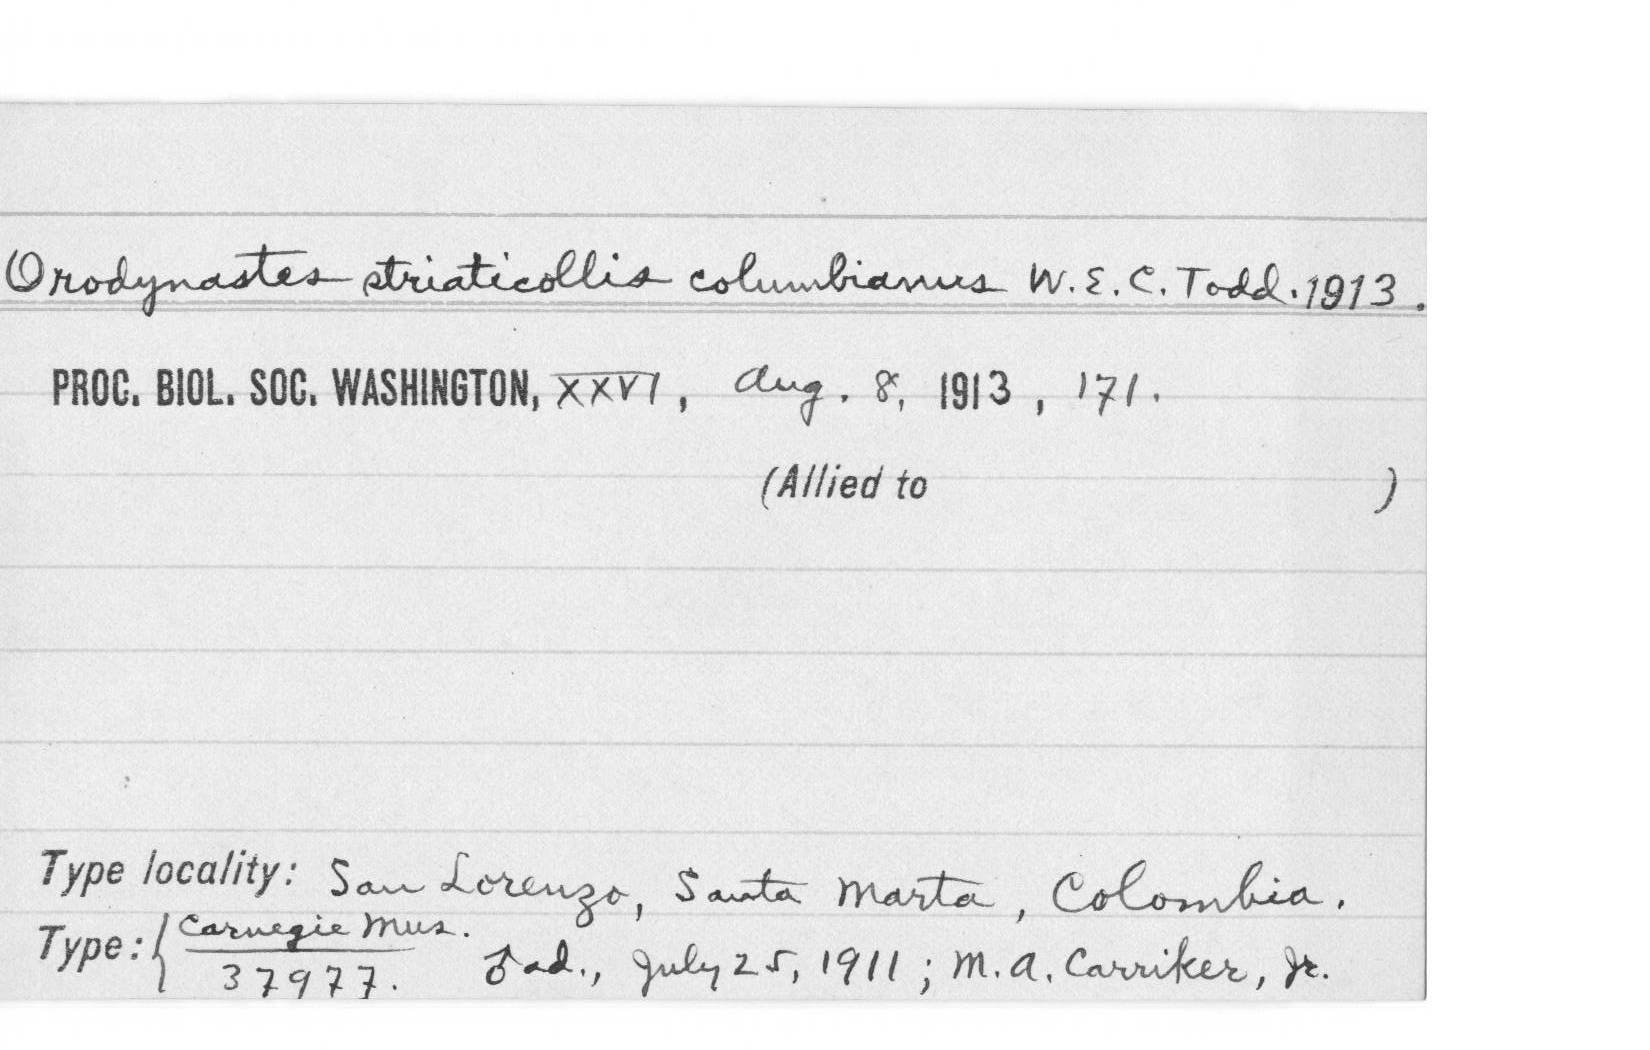 Orodynastes striaticollis columbianus W.E.C. Todd. 1913.
PROC. BIOL. SOC. WASHINGTON, XXVI, Aug. 8, 1913, 171.
(Allied to )
Type locality: San Lorenzo, Santa Marta, Colombia.
Type: { Carnegie Mus.
37977. ♂ ad., July 25, 1911; M.A. Carriker, Jr.